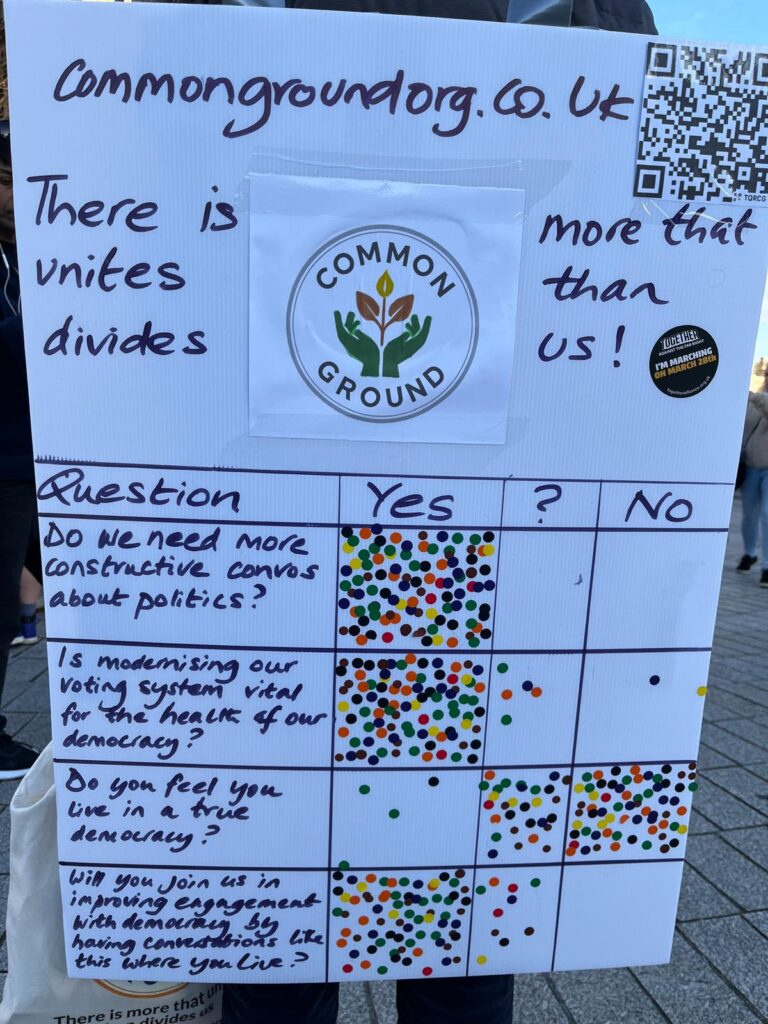 commongroundorg.co.uk
TQRCG
There is
unites
divides
COMMON
GROUND
more that
than
us!
TOGETHER
AGAINST THE FAR RIGHT
I'M MARCHING
ON MARCH 28th
togetheralliance.org.uk
Question Yes ? No
Do we need more
constructive convos
about politics?
Is modernising our
voting system vital
for the health of our
democracy?
Do you feel you
live in a true
democracy?
Will you join us in
improving engagement
with democracy by
having conversations like
this where you live?
There is more that un
divides us